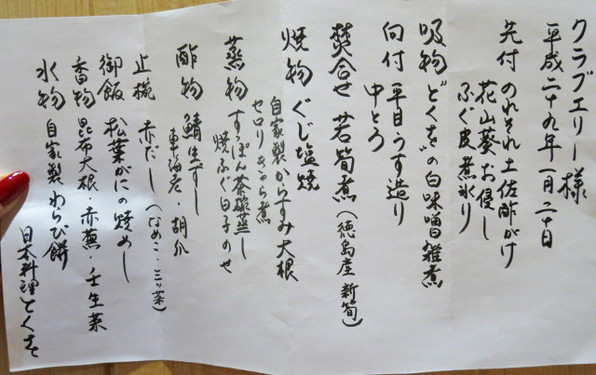 クラブエリー様
平成二十九年一月二十日
先付 のれそれ土佐酢がけ
花山葵お浸し
ふぐ皮煮氷り
吸物 どくさ"の白味噌雑煮
向付 平目うす造り
中とろ
焚合せ 若筍煮(徳島産 新筍)
焼物 ぐじ塩焼
自家製からすみ大根
セロリきゃら煮
蒸物 すっぽん茶碗蒸し
焼ふぐ白子のせ
酢物 鯖生ずし
車海老・胡瓜
止椀 赤だし(なめこ・三ッ葉)
御飯 松葉がにの焼めし
香物 昆布大根・赤蕪・壬生菜
水物 自家製わらび餅
日本料理とくを